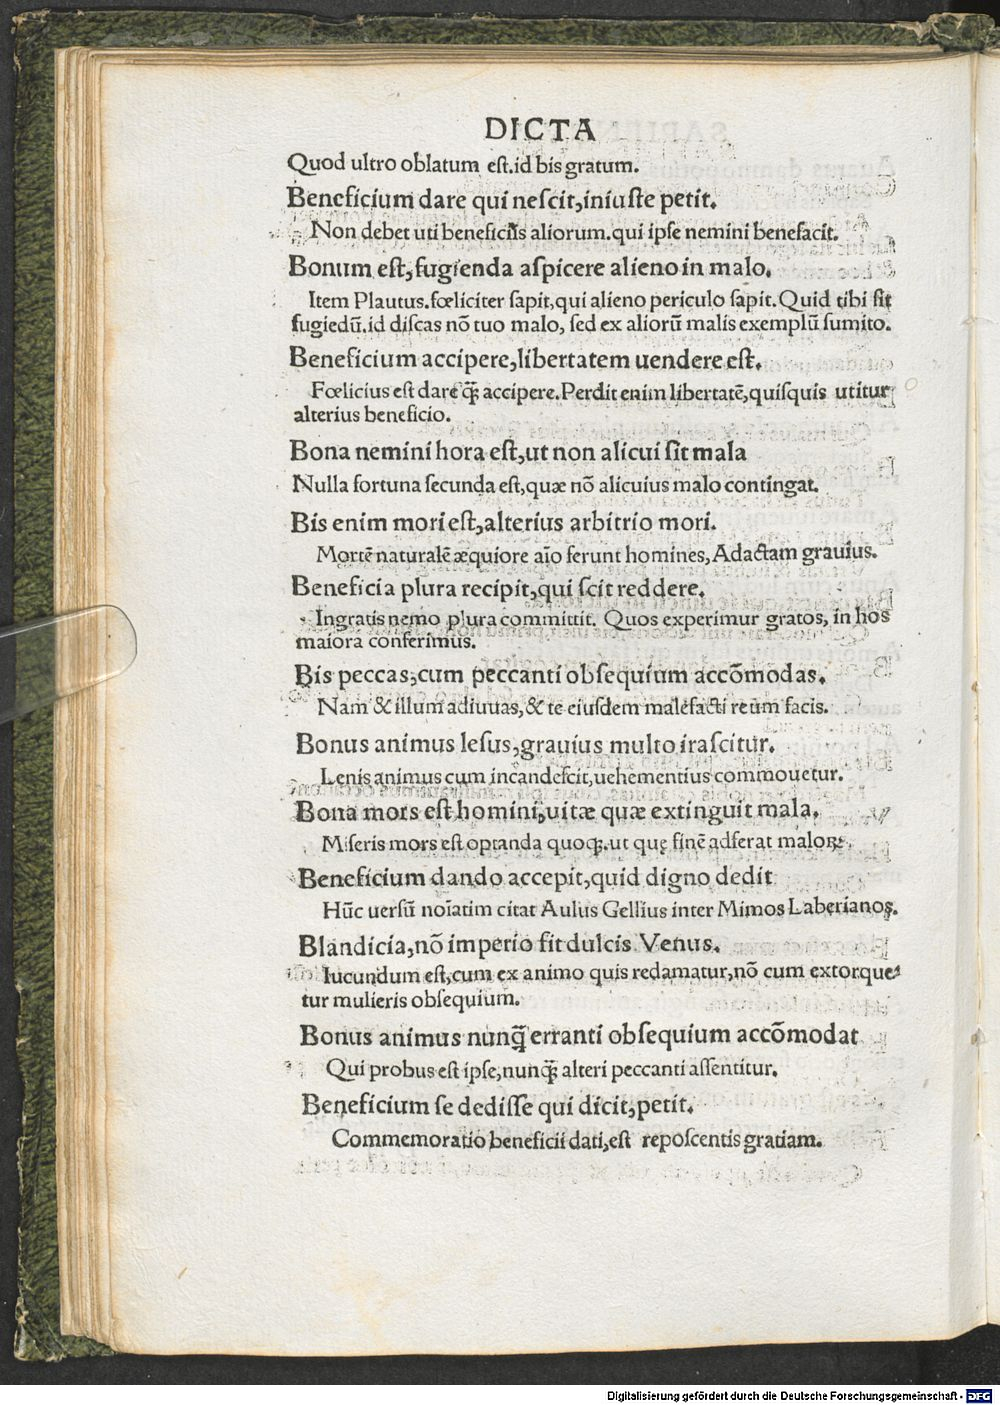 DICTA
Quod ultro oblatum est.id bis gratum.
Beneficium dare qui nescit,iniuste petit.
Non debet uti beneficiis aliorum.qui ipse nemini benefacit.
Bonum est,fugienda aspicere alieno in malo.
Item Plautus.fœliciter sapit,qui alieno periculo sapit.Quid tibi sit
fugiēdū.id discas nō tuo malo, sed ex aliorū malis exemplū sumito.
Beneficium accipere,libertatem uendere est.
Fœlicius est dare q̄ꝫ accipere.Perdit enim libertatē,quisquis utitur
alterius beneficio.
Bona nemini hora est,ut non alicui sit mala
Nulla fortuna secunda est,quæ nō alicuius malo contingat.
Bis enim mori est,alterius arbitrio mori.
Mortē naturalē æquiore aīo ferunt homines,Adactam grauius.
Beneficia plura recipit,qui scit reddere.
Ingratis nemo plura committit. Quos experimur gratos, in hos
maiora conferimus.
Bis peccas,cum peccanti obsequium accōmodas.
Nam & illum adiuuas,& te eiusdem malefacti reum facis.
Bonus animus lesus,grauius multo irascitur.
Lenis animus cum incandescit,uehementius commouetur.
Bona mors est homini,uitæ quæ extinguit mala.
Miseris mors est optanda quoqꝫ.ut quę finē adferat maloꝝ.
Beneficium dando accepit,quid digno dedit
Hūc uersū noīatim citat Aulus Gellius inter Mimos Laberianos.
Blandicia,nō imperio fit dulcis Venus.
Iucundum est,cum ex animo quis redamatur,nō cum extorque⸗
tur mulieris obsequium.
Bonus animus nunq̄ erranti obsequium accōmodat
Qui probus est ipse,nunq̄ꝫ alteri peccanti assentitur.
Beneficium se dedisse qui dicit,petit.
Commemoratio beneficii dati,est reposcentis gratiam.
Digitalisierung gefördert durch die Deutsche Forschungsgemeinschaft - DFG